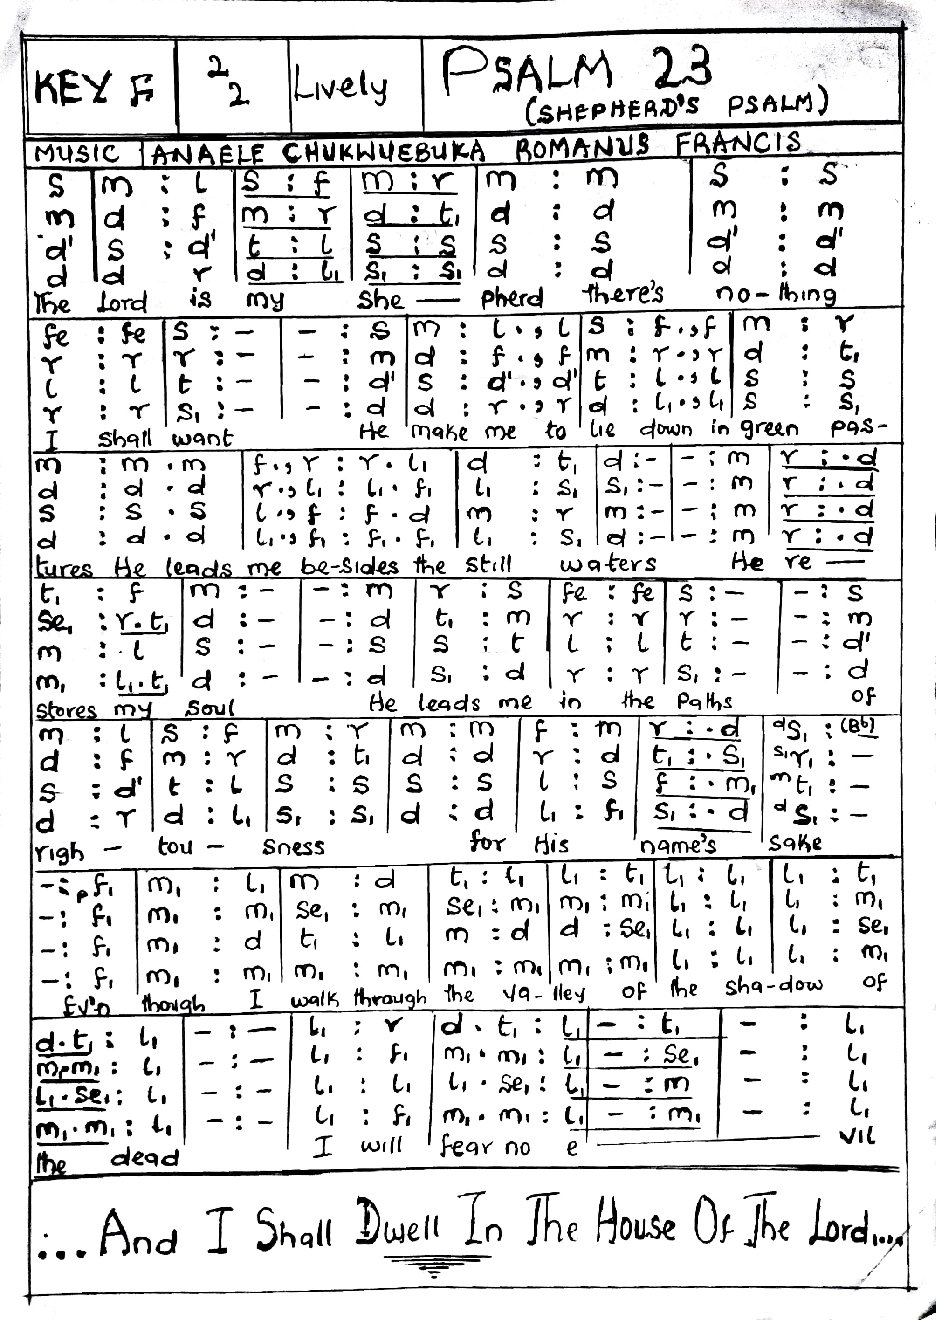 KEY F 2 2 Lively PSALM 23
(SHEPHERD'S PSALM)
MUSIC | ANAELE CHUKWUEBUKA ROMANUS FRANCIS
s | m : l | s : f | m : r | m : m | s : s
m | d : f | m : r | d : t₁ | d : d | m : m
d' | s : d' | t : l | s : s | s : s | d' : d'
d | d r | d : l₁ | s₁ : s₁ | d : d | d : d
The Lord is my She — pherd there's no-thing
fe : fe | s : - | - : s | m : l ., l | s : f ., f | m : r
r : r | r : - | - : m | d : f ., f | m : r ., r | d : t₁
l : l | t : - | - : d' | s : d' ., d' | t : l ., l | s : s
r : r | s₁ : - | - : d | d : r ., r | d : l₁ ., l₁ | s : s₁
I shall want He make me to lie down in green pas-
m : m . m | f ., r : r . l₁ | d : t₁ | d : - | - : m | r : . d
d : d . d | r ., l₁ : l₁ . f₁ | l₁ : s₁ | s₁ : - | - : m | r : . d
s : s . s | l ., f : f . d | m : r | m : - | - : m | r : . d
d : d . d | l₁ ., f₁ : f₁ . f₁ | l₁ : s₁ | d : - | - : m | r : . d
tures He leads me be-sides the still waters He re —
t₁ : f | m : - | - : m | r : s | fe : fe | s : - | - : s
se₁ : r . t₁ | d : - | - : d | t₁ : m | r : r | r : - | - : m
m : . l | s : - | - : s | s : t | l : l | t : - | - : d'
m₁ : l₁ . t₁ | d : - | - : d | s₁ : d | r : r | s₁ : - | - : d
stores my Soul He leads me in the Paths of
m : l | s : f | m : r | m : m | f : m | r : . d | ᵈs₁ : (Bb)
d : f | m : r | d : t₁ | d : d | r : d | t₁ : . s₁ | ˢ¹r₁ : -
s : d' | t : l | s : s | s : s | l : s | f : . m₁ | ᵐt₁ : -
d : r | d : l₁ | s₁ : s₁ | d : d | l₁ : f₁ | s₁ : . d | ᵈs₁ : -
righ - tou - sness for His name's sake
- : p f₁ | m₁ : l₁ | m : d | t₁ : l₁ | l₁ : t₁ | l₁ : l₁ | l₁ : t₁
- : f₁ | m₁ : m₁ | se₁ : m₁ | se₁ : m₁ | m₁ : m₁ | l₁ : l₁ | l₁ : m₁
- : f₁ | m₁ : d | t₁ : l₁ | m : d | d : se₁ | l₁ : l₁ | l₁ : se₁
- : f₁ | m₁ : m₁ | m₁ : m₁ | m₁ : m₁ | m₁ : m₁ | l₁ : l₁ | l₁ : m₁
Ev'n though I walk through the va-lley of the sha-dow of
d . t₁ : l₁ | - : - | l₁ : r | d . t₁ : l₁ | - : t₁ | - : l₁
m₁ . m₁ : l₁ | - : - | l₁ : f₁ | m₁ . m₁ : l₁ | - : se₁ | - : l₁
l₁ . se₁ : l₁ | - : - | l₁ : l₁ | l₁ . se₁ : l₁ | - : m | - : l₁
m₁ . m₁ : l₁ | - : - | l₁ : f₁ | m₁ . m₁ : l₁ | - : m₁ | - : l₁
the dead I will fear no e — vil
...And I Shall Dwell In The House Of The Lord....